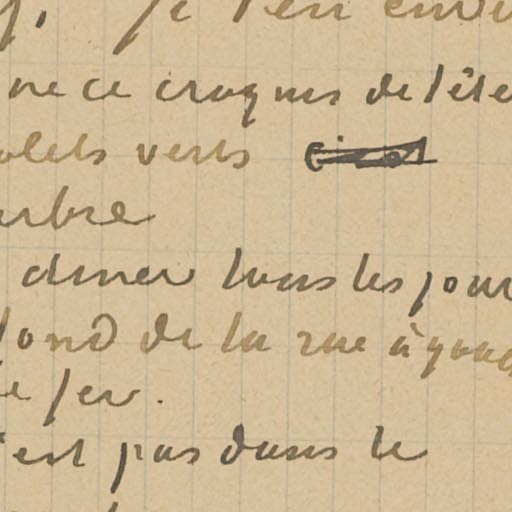 je t'en envoi
ne ce croquis de l'ete
olets verts
arbre
diner tous les jour
fond de la rue à gauc
e fer.
'est pas dans le